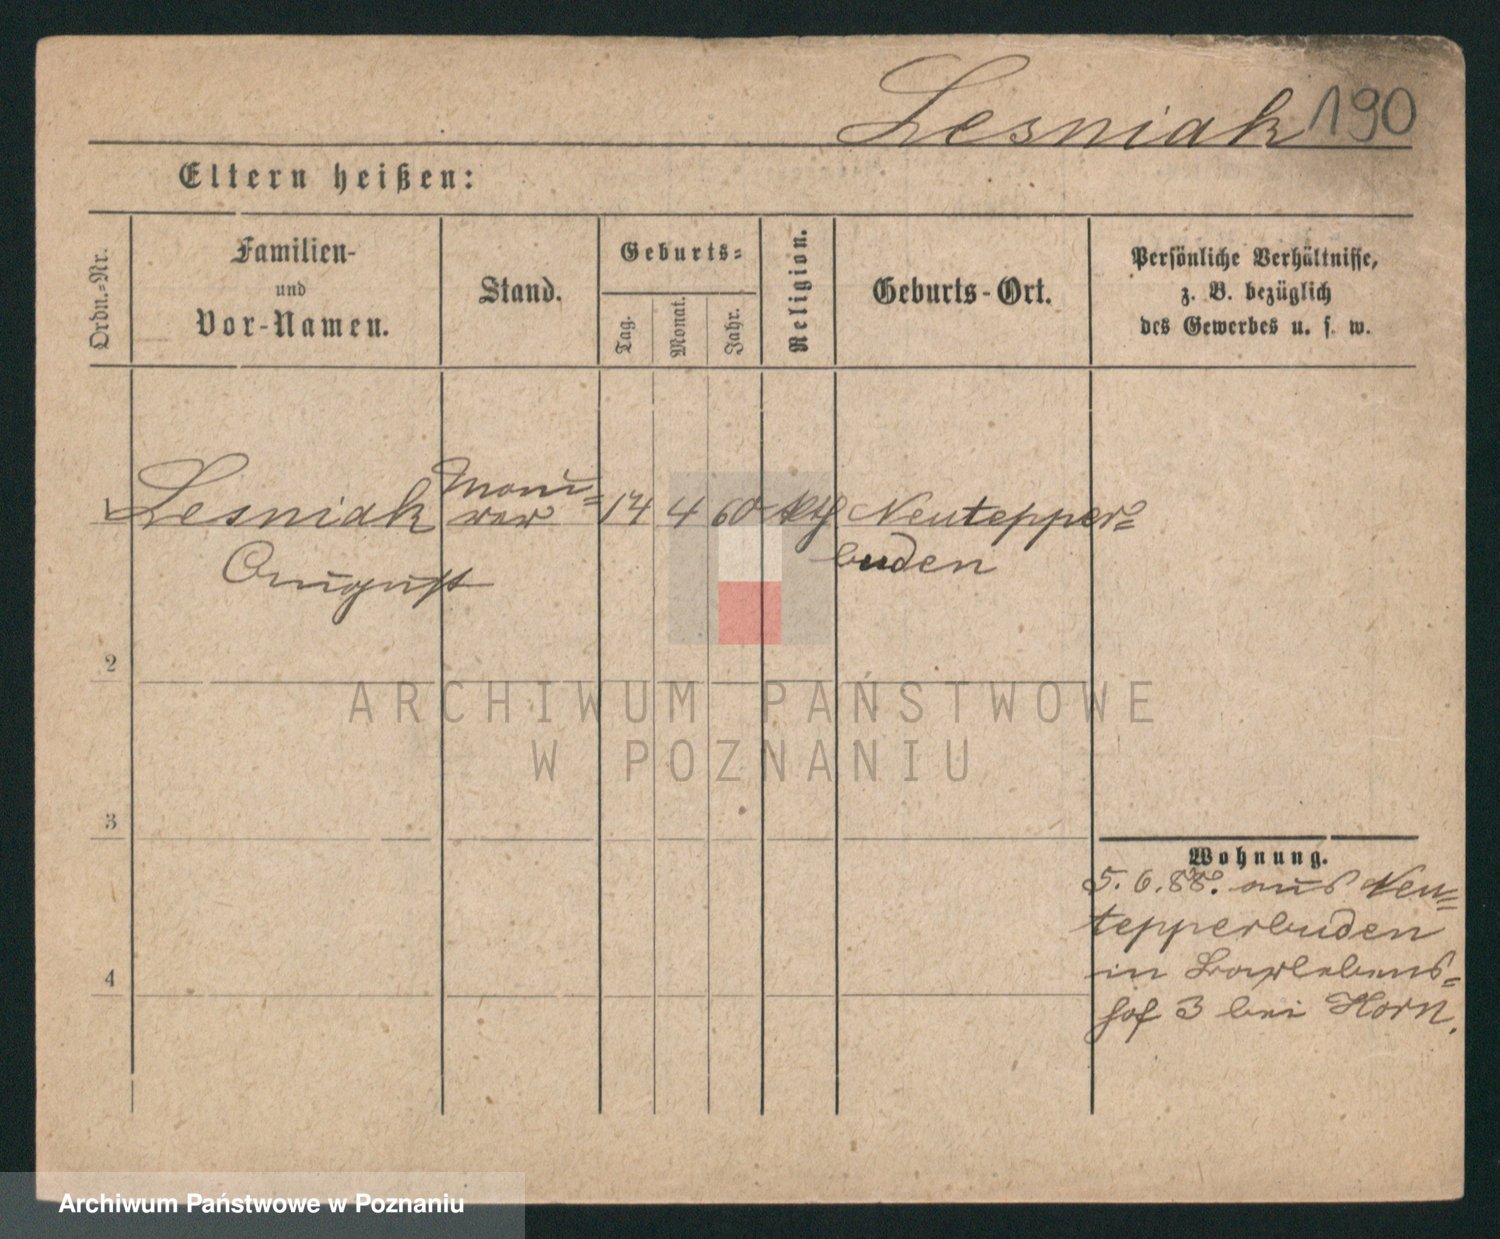 Lesniak 190
Eltern heißen:
Ordn.-Nr.
Familien-
und
Vor-Namen.
Stand.
Geburts-
Tag.
Monat.
Jahr.
Religion.
Geburts-Ort.
Persönliche Verhältnisse,
z. B. bezüglich
des Gewerbes u. s. w.
1 Lesniak
August
Mau-
rer
14 4 60 kth
Neutepper-
buden
2
3
4
Wohnung.
5.6.88. aus Neu-
tepperbuden
in Barlebens-
hof 3 bei Horn.
ARCHIWUM PAŃSTWOWE
W POZNANIU
Archiwum Państwowe w Poznaniu